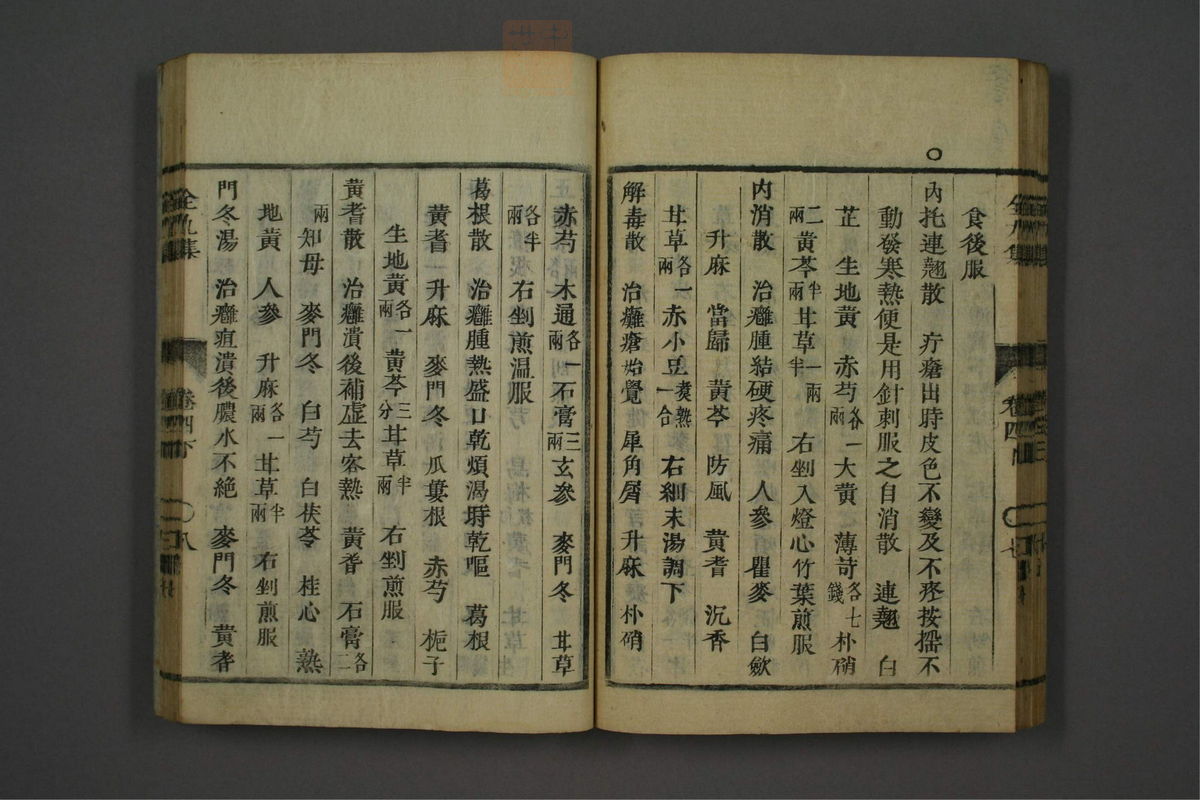 食後服
內托連翹散 疔瘡出時皮色不變及不疼按摇不
動發寒熱便是用針刺服之自消散 連翹 白
芷 生地黃 赤芍各一兩大黃 薄苛各七錢朴硝
二兩黃芩半兩甘草一兩半 右剉入燈心竹葉煎服
內消散 治癰腫結硬疼痛 人參 瞿麥 白斂
升麻 當歸 黃芩 防風 黃耆 沉香
甘草各一兩赤小豆煑熟一合 右細末湯調下
解毒散 治癰瘡始覺 犀角屑 升麻 朴硝
赤芍 木通各一兩石膏三兩玄參 麥門冬 甘草
各半兩 右剉煎温服
葛根散 治癰腫熱盛口乾煩渴 乾嘔 葛根
黃耆 升麻 麥門冬 瓜蔞根 赤芍 梔子
生地黃各一兩 黃芩三分甘草半兩 右剉煎服
黃耆散 治癰潰後補虛去客熱 黃耆 石膏各二
兩知母 麥門冬 白芍 白茯苓 桂心 熟
地黃 人參 升麻各一兩甘草半兩右剉煎服
門冬湯 治癰疽潰後膿水不絶 麥門冬 黃耆
全九集
卷四下
八